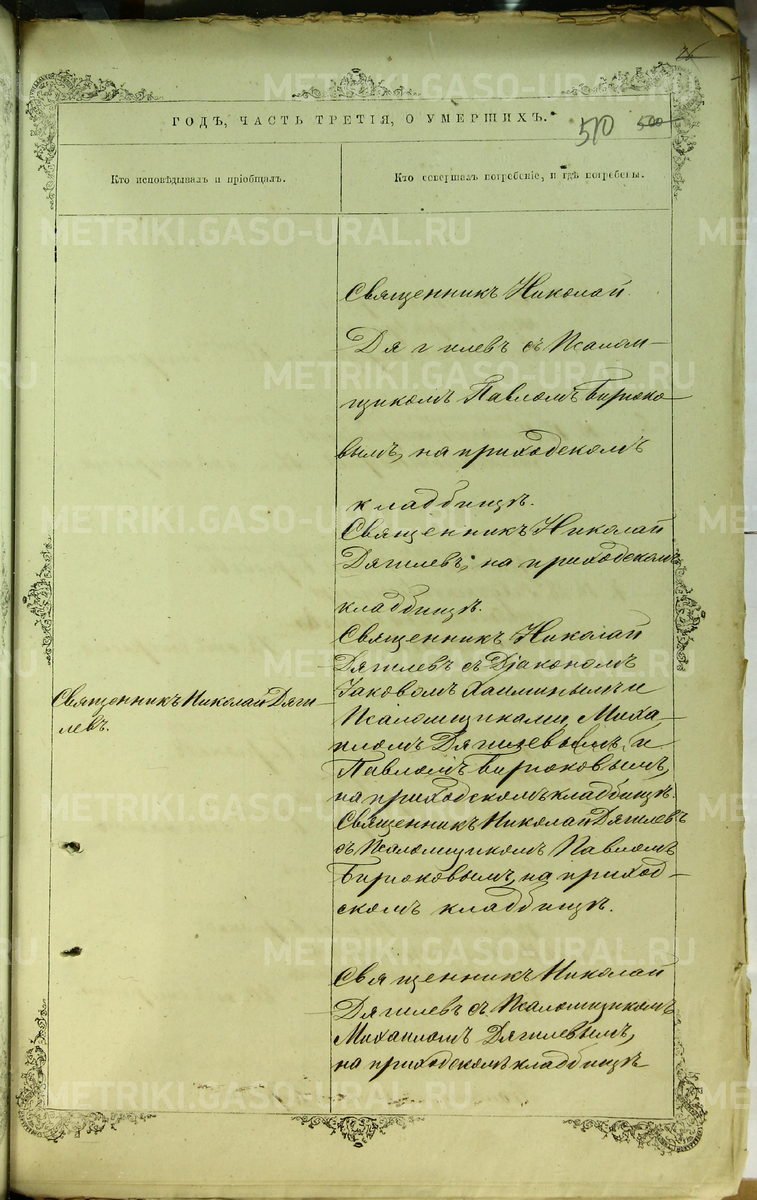 26
ГОДЪ, ЧАСТЬ ТРЕТІЯ, О УМЕРШИХЪ.
510 500
Кто исповѣдывалъ и пріобщалъ.
Кто совершалъ погребеніе, и гдѣ погребены.
Священникъ Николай
Дягилевъ съ Псалом-
щикомъ Павломъ Бирюко
вымъ, на приходскомъ
кладбищѣ.
Священникъ Николай
Дягилевъ, на приходскомъ
кладбищѣ.
Священникъ Николай Дяги-
левъ.
Священникъ Николай
Дягилевъ съ Діакономъ
Іаковомъ и
Псаломщиками, Миха-
иломъ Дягилевымъ и
Павломъ Бирюковымъ,
на приходскомъ кладбищѣ.
Священникъ Николай Дягилевъ
съ Псаломщикомъ Павломъ
Бирюковымъ, на приход-
скомъ кладбищѣ.
Священникъ Николай
Дягилевъ съ Псаломщикомъ
Михаиломъ Дягилевымъ,
на приходскомъ кладбищѣ
METRIKI.GASO-URAL.RU